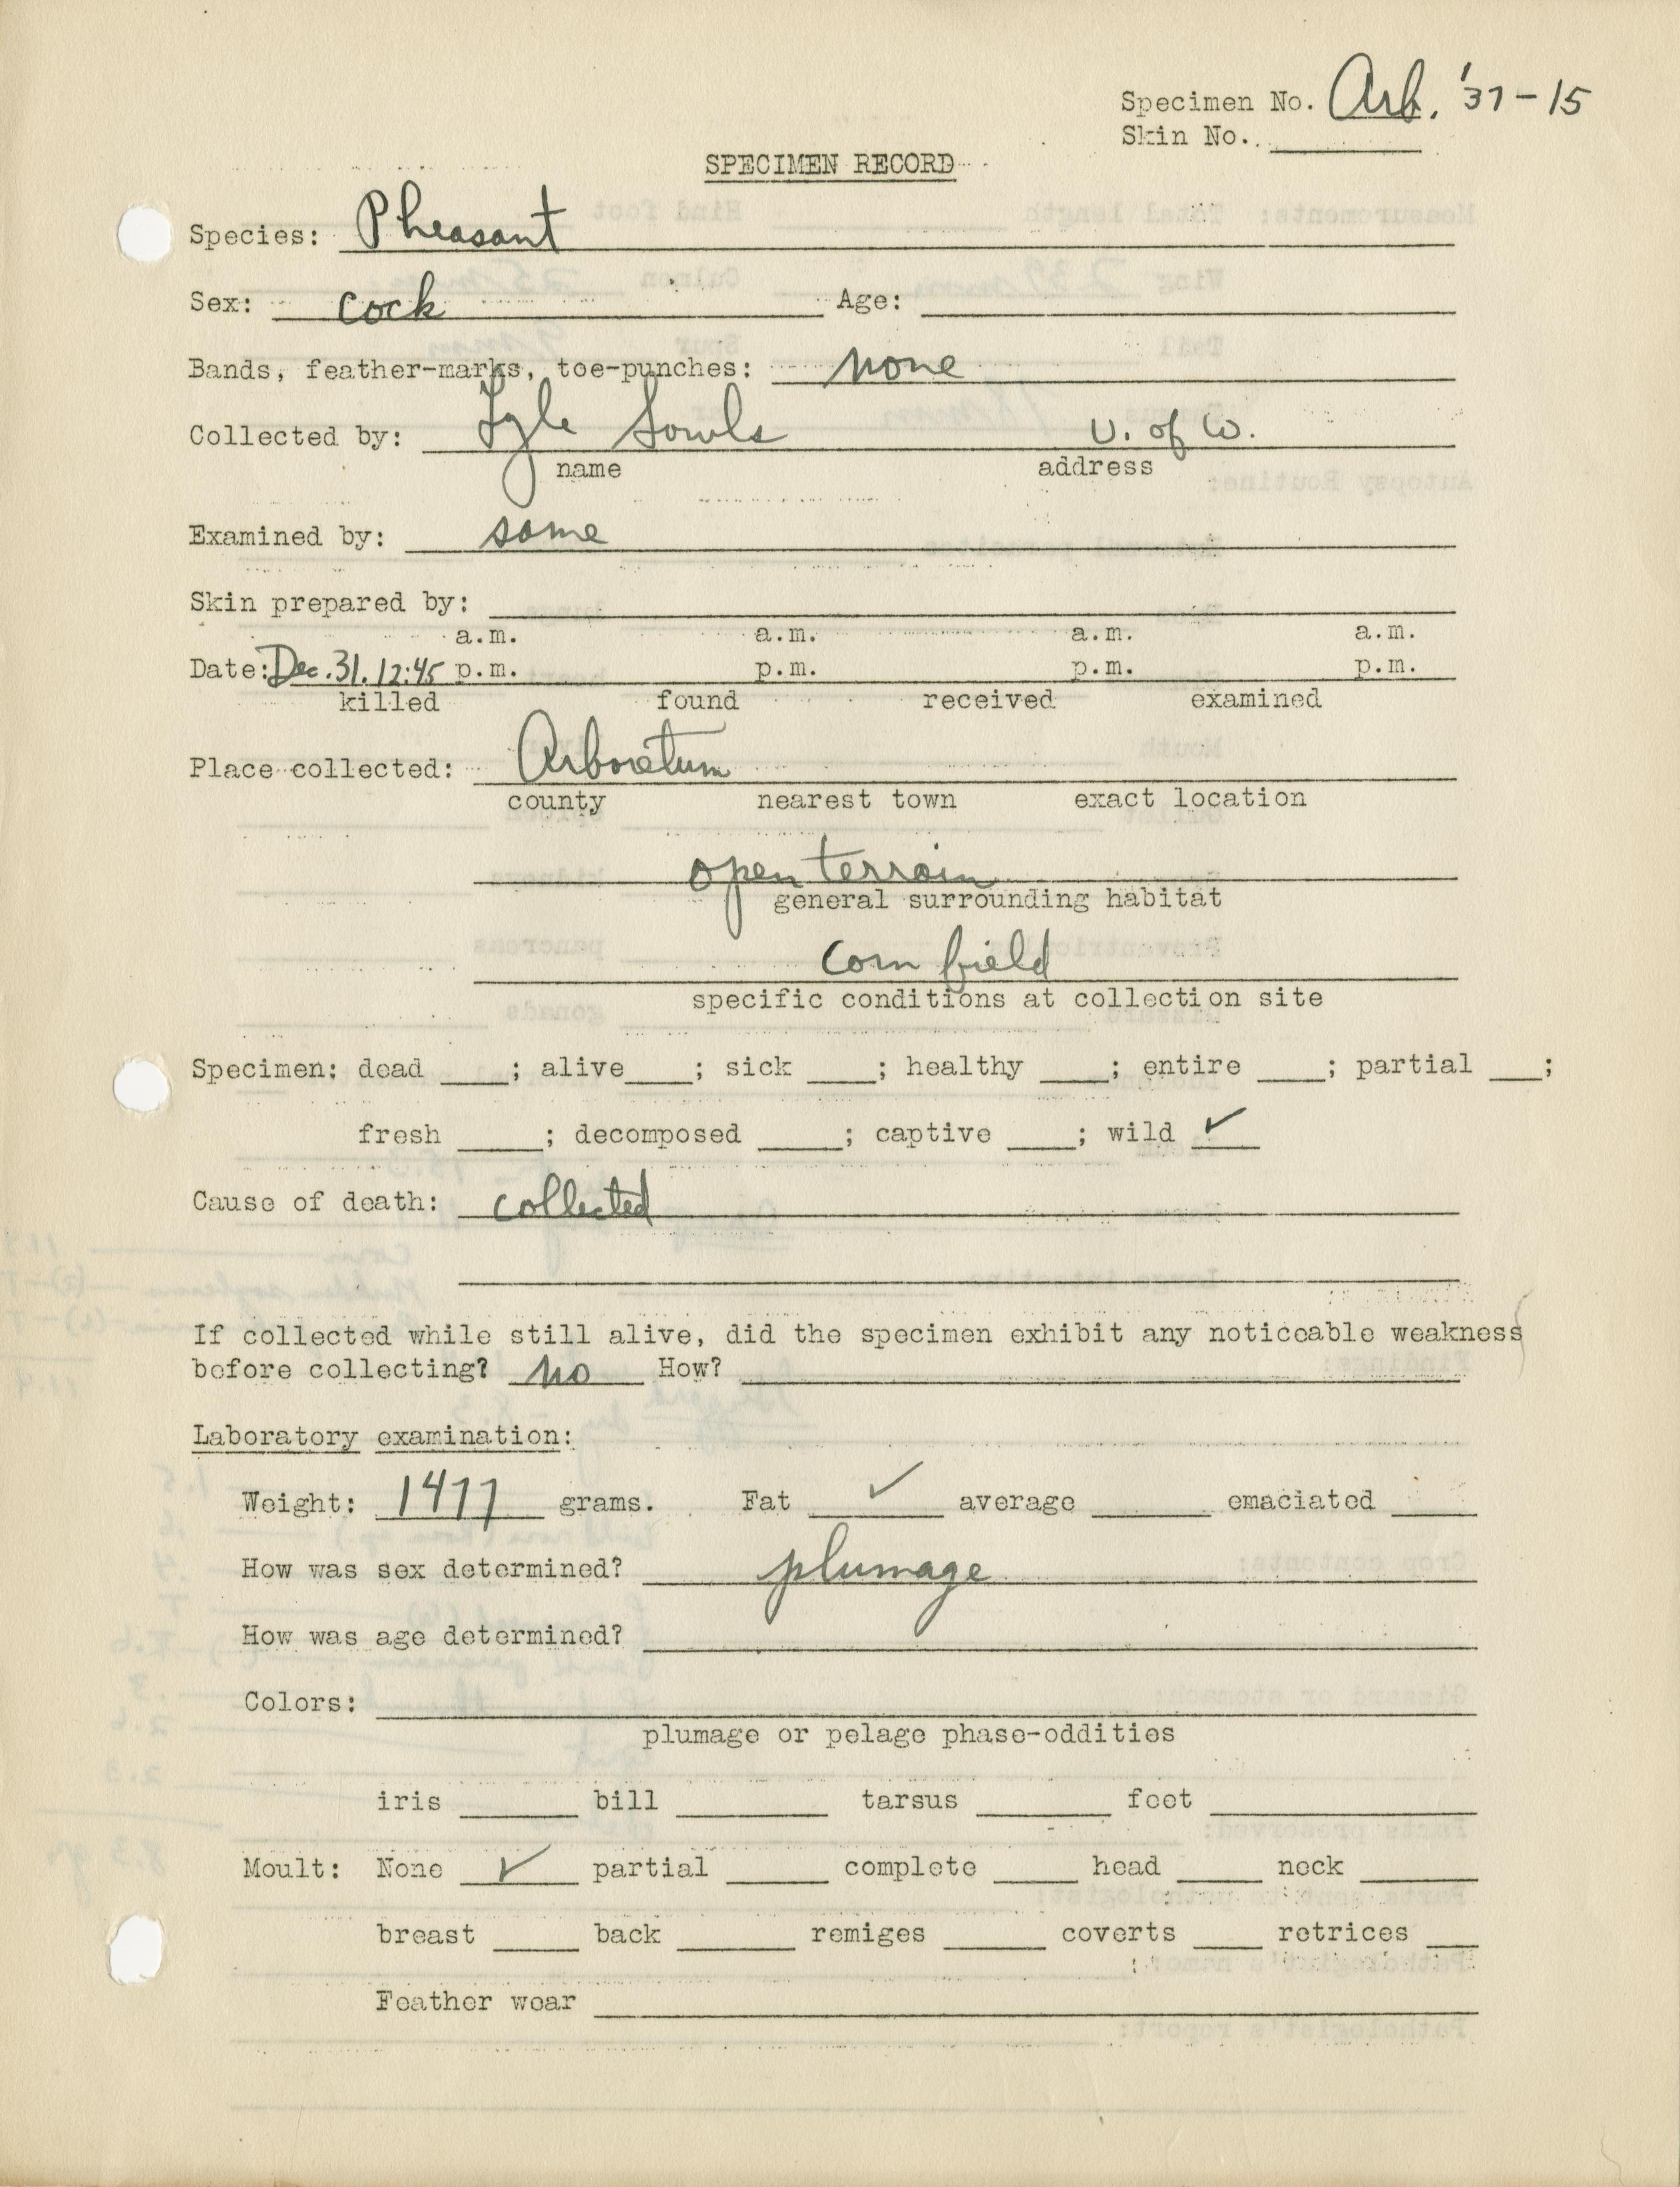 Specimen No. Arb. '37-15
Skin No. ______
SPECIMEN RECORD
Species: Pheasant
Sex: cock Age: ______
Bands, feather-marks, toe-punches: none
Collected by: Lyle Sowls U. of W.
name address
Examined by: same
Skin prepared by: ______
a.m. a.m. a.m. a.m.
Date: Dec. 31. 12:45 p.m. p.m. p.m. p.m.
killed found received examined
Place collected: Arboretum
county nearest town exact location
open terrain
general surrounding habitat
Corn field
specific conditions at collection site
Specimen: dead ____; alive ____; sick ____; healthy ____; entire ____; partial ___;
fresh ____; decomposed ____; captive ____; wild ✓
Cause of death: collected
If collected while still alive, did the specimen exhibit any noticeable weakness
before collecting? no How? ______
Laboratory examination:
Weight: 1477 grams. Fat ✓ average ____ emaciated ____
How was sex determined? plumage
How was age determined? ______
Colors: ______
plumage or pelage phase-oddities
iris ____ bill ____ tarsus ____ foot ____
Moult: None ✓ partial ____ complete ____ head ____ neck ____
breast ____ back ____ remiges ____ coverts ____ retrices ____
Feather wear ______